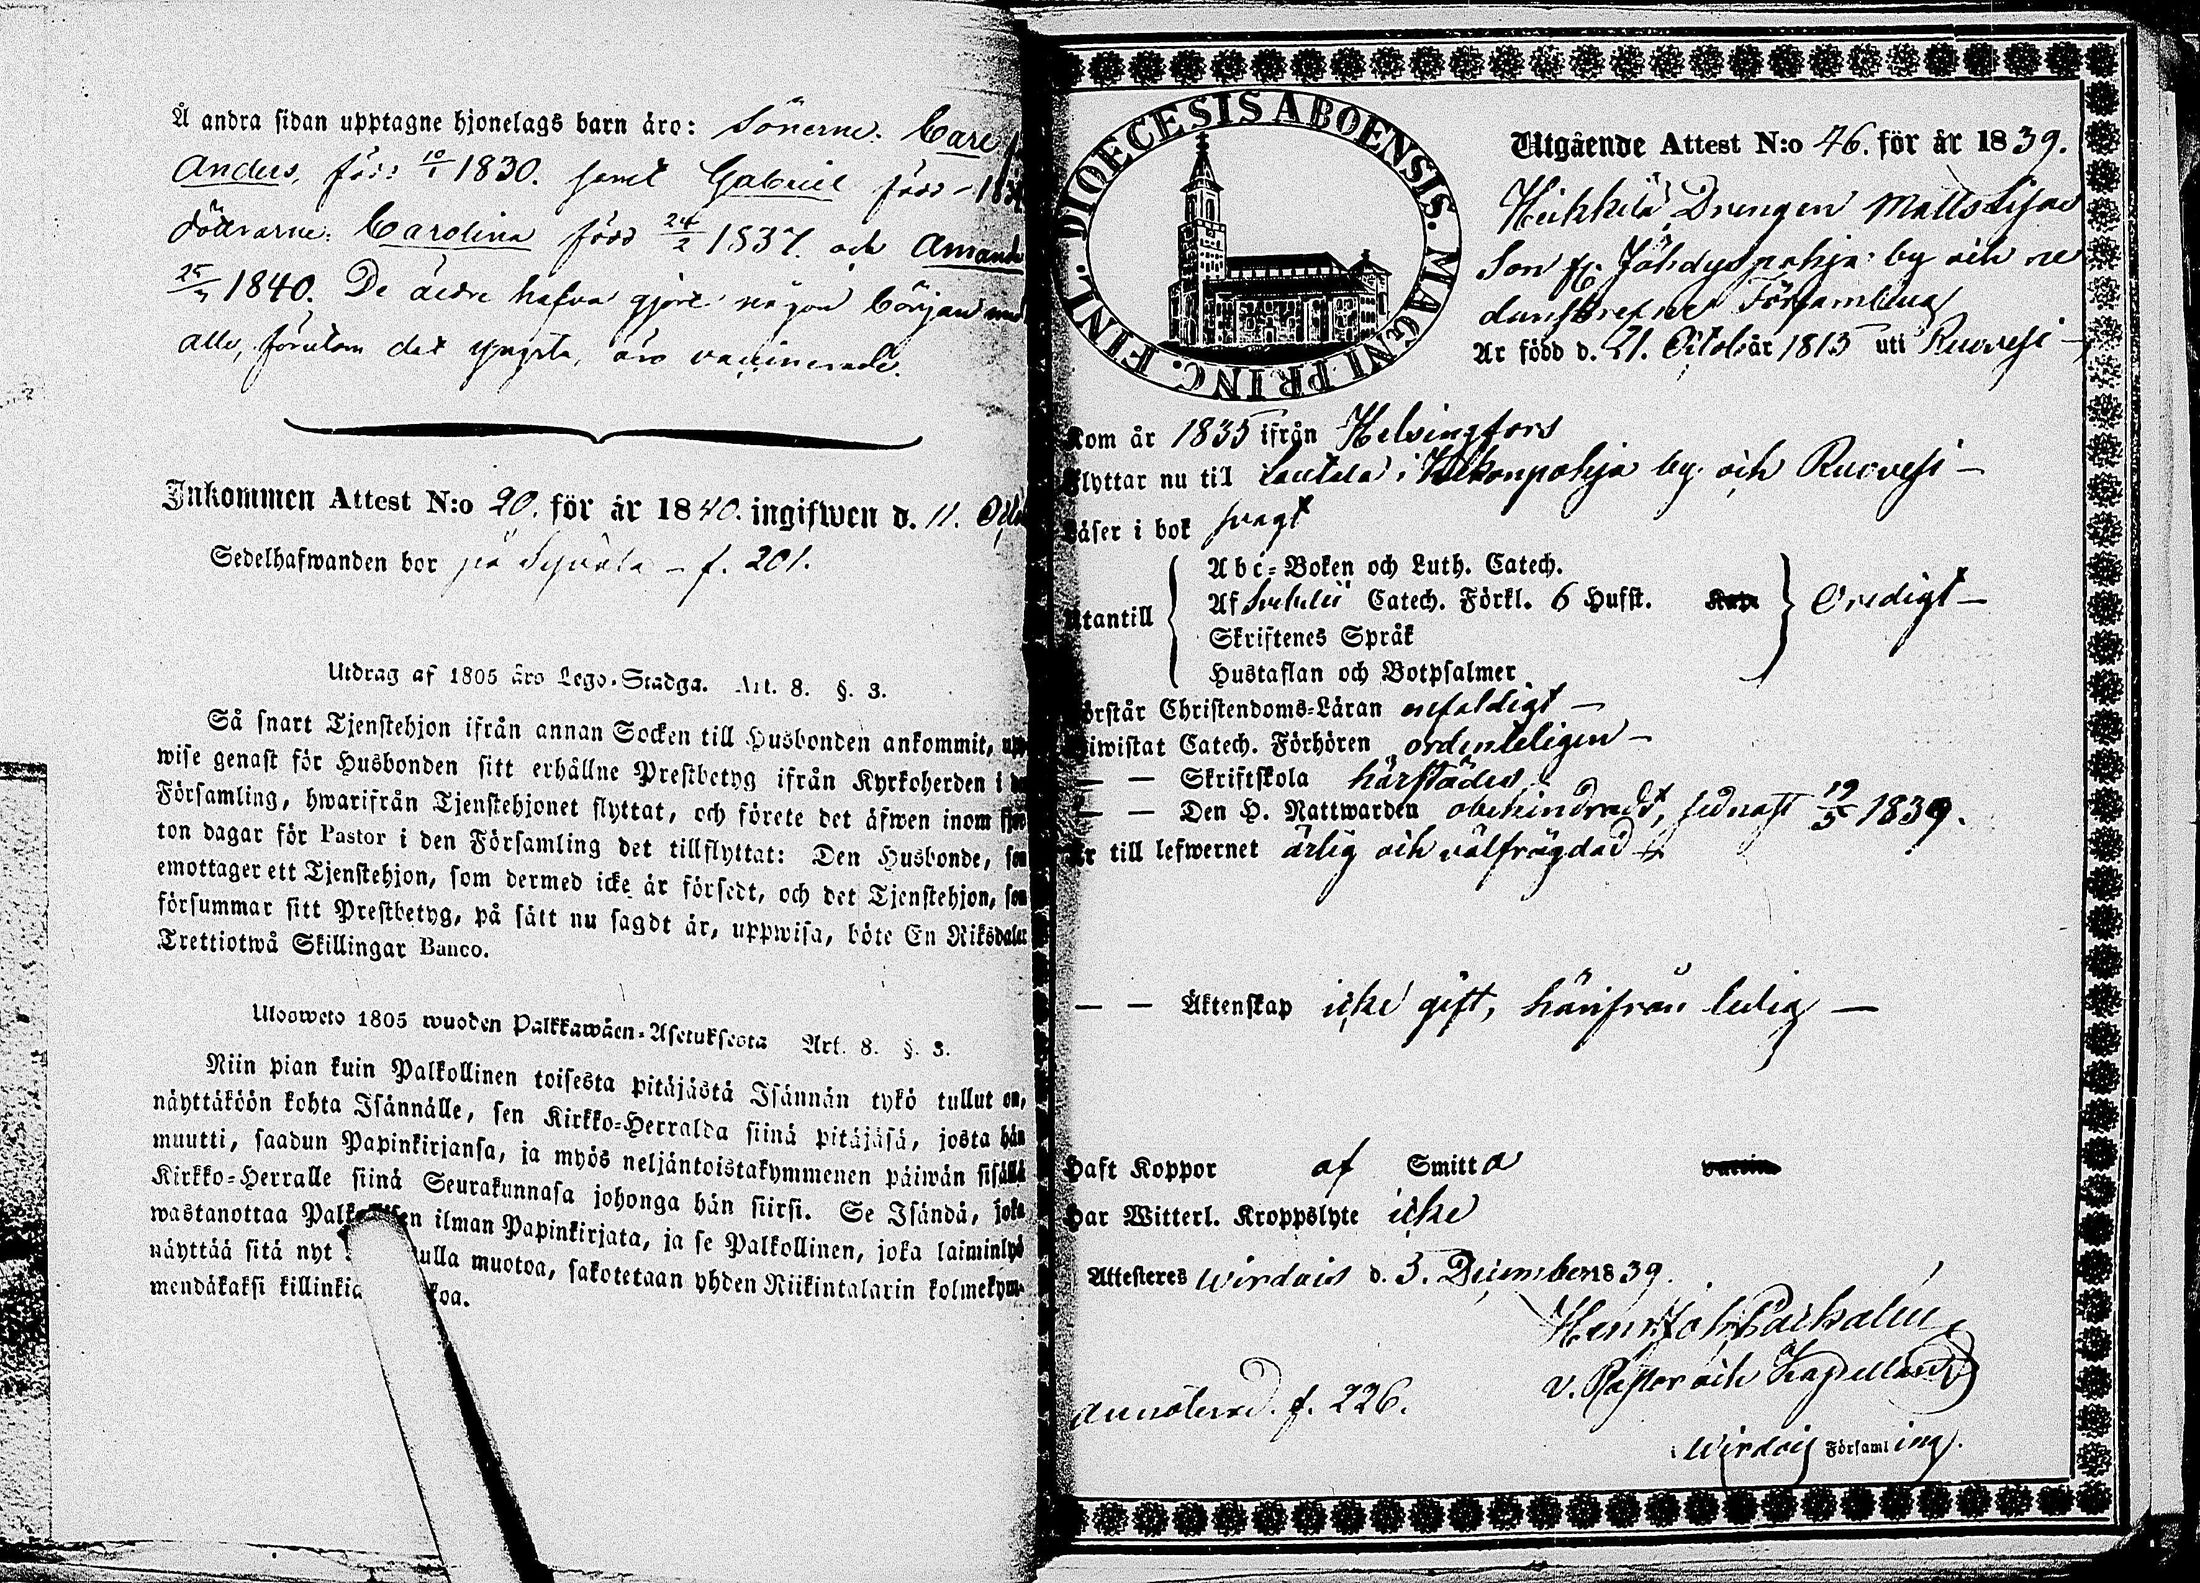 Å andra sidan upptagne hjonelags barn äro: Sönerne: Carl
Anders, född 10/1 1830. samt Gabriel född
döttrarne: Carolina född 24/2 1837. och Amanda
25/ 1840. De äldre hafva gjort någon början med
alla, förutom det yngsta, äro vaccinerade.
Inkommen Attest N:o 20. för år 1840. ingifwen d. 11. Octo
Sedelhafwanden bor på – f. 201.
Utdrag af 1805 års Lego-Stadga. Art. 8. §. 3.
Så snart Tjenstehjon ifrån annan Socken till Husbonden ankommit, upp-
wise genast för Husbonden sitt erhållne Prestbetyg ifrån Kyrkoherden i den
Församling, hwarifrån Tjenstehjonet flyttat, och förete det äfwen inom fjor-
ton dagar för Pastor i den Församling det tillflyttat: Den Husbonde, som
emottager ett Tjenstehjon, som dermed icke är försedt, och det Tjenstehjon, som
försummar sitt Prestbetyg, på sätt nu sagdt är, uppwisa, böte En Riksdaler
Trettiotwå Skillingar Banco.
Ulosweto 1805 wuoden Palkkawäen-Asetuksesta Art. 8. §. 3.
Niin pian kuin Palkollinen toisesta pitäjästä Isännän tykö tullut on,
näyttäköön kohta Isännälle, sen Kirkko-Herralda siinä pitäjäsä, josta hän
muutti, saadun Papinkirjansa, ja myös neljäntoistakymmenen päiwän sisällä
Kirkko-Herralle siinä Seurakunnasa johonga hän siirsi. Se Isändä, joka
wastanottaa Palkollisen ilman Papinkirjata, ja se Palkollinen, joka laiminlyö
näyttää sitä nyt ulla muotoa, sakotetaan yhden Riikintalarin kolmekym-
mendäkaksi killinkiä koa.
DIOECESIS ABOENSIS. MAGNI PRINC. FINL.
Utgående Attest N:o 46. för år 1839.
Heikkilä Drengen Matts
Son fr. Jähdyspohja by och ne
danskrefne Församling
Är född d. 21. October 1815 uti Ruovesi –
Kom år 1835 ifrån Helsingfors
Flyttar nu til Lautala i Wekonpohja by och Ruovesi –
Läser i bok svagt
Utantill
Abc-Boken och Luth. Catech.
Af Svebelii Catech. Förkl. 6 Hufst.
Skriftenes Språk
Hustaflan och Botpsalmer
Oredigt –
Förstår Christendoms-Läran enfaldigt –
Biwistat Catech. Förhören ordenteligen –
— — Skriftskola härstädes
— — Den H. Nattwarden obehindradt, sednast 19/5 1839.
Är till lefwernet ärlig och välfrägdad
— — Äktenskap icke gift, härifrån ledig —
Haft Koppor af Smitta
Har Witterl. Kroppslyte icke
Attesteres Wirdois d. 3. December 1839.
Henr. Joh.
v. Pastor och Kapellan
i Wirdois Församling.
Annoterad. f. 226.